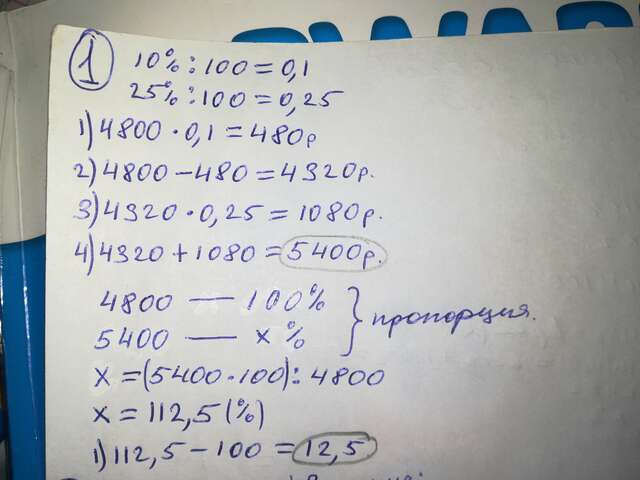 1
10% : 100 = 0,1
25% : 100 = 0,25
1) 4800 · 0,1 = 480р
2) 4800 – 480 = 4320р.
3) 4320 · 0,25 = 1080р.
4) 4320 + 1080 = 5400р.
4800 — 100%
5400 — х %
} пропорция.
х = (5400 · 100) : 4800
х = 112,5 (%)
1) 112,5 – 100 = 12,5